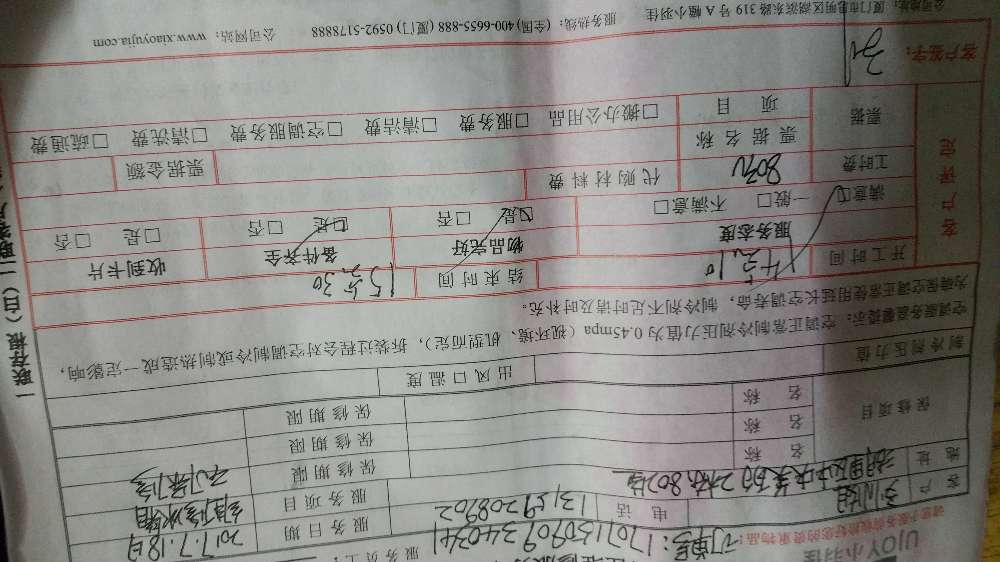 UJOY小羽佳
请您小服务前收拾好您的贵重物品:
订单号:170715090934034
服务日期 2017.7.18日
客户 电话 13159208902
服务项目
地址
保修期限
保修项目
名称
保修期限
名称
保修期限
名称
制冷剂压力值
出风口温度
空调服务温馨提示:空调正常制冷剂压力值为0.45mpa(视环境、机型而定),拆装过程会对空调制冷或制热造成一定影响,
为确保空调正常使用延长空调寿命,制冷剂不足时请及时补充。
开工时间 结束时间 15点30
客户评定
服务态度 物品完好 备件齐全 收到卡片
满意□ 一般□ 不满意□ □是 □否 □是 □否 □是 □否
工时费 80元 代购材料费
票据
票据名称 票据金额
项目 □搬办公用品 □服务费 □清洁费 □空调服务费 □清洗费 □疏通费
客户签字:
厦门市思明区湖滨东路319号A幢小羽佳 服务热线:(全国)400-6655-888 (厦门)0592-5178888 公司网站:www.xiaoyujia.com
一联存根(白)